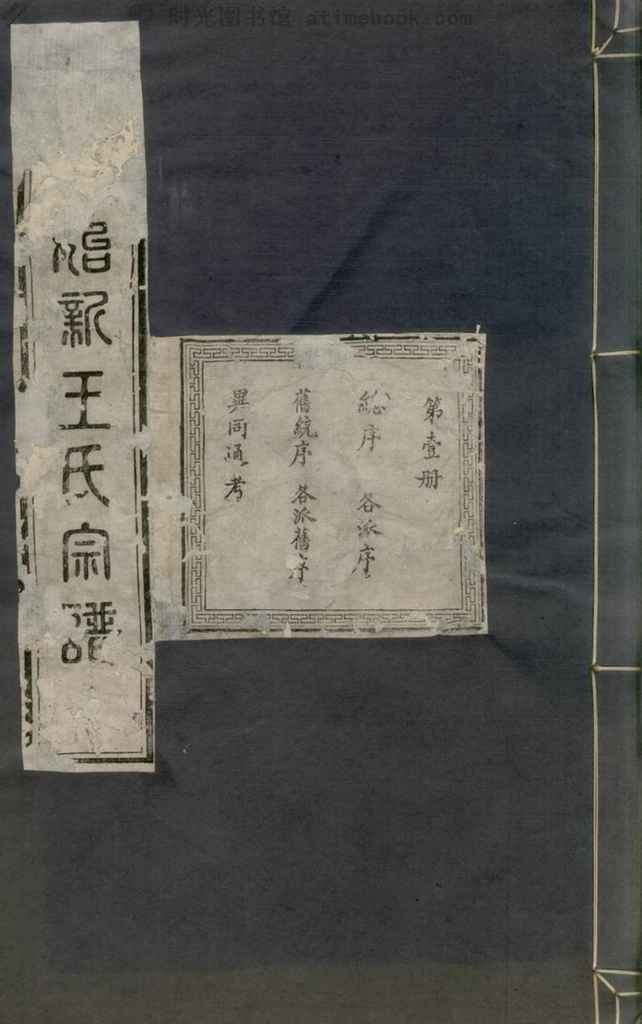 时光图书馆 atimebook.com
始新王氏宗譜
第壹册
総序 各派序
舊統序 各派舊序
異同通考